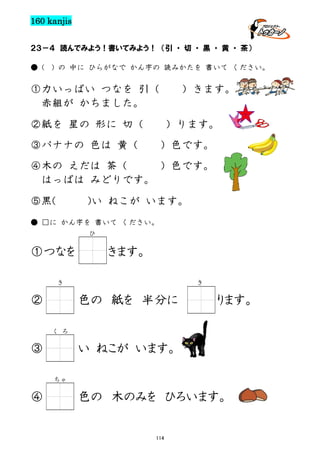 160 kanjis
プロジェクト
23－4 読んでみよう！書いてみよう！（引・切・黒・黄・茶）
●（ ）の 中に ひらがなで かん字の 読みかたを 書いて ください。
①力いっぱい つなを 引（　　）きます。
赤組が かちました。
②紙を 星の 形に 切（　　）ります。
③バナナの 色は 黄（　　）色です。
④木の えだは 茶（　　）色です。
はっぱは みどりです。
⑤黒(　　)い ねこが います。
●□に かん字を 書いて ください。
ひ
①つなを　　きます。
き　　き
②　　色の 紙を 半分に　　ります。
くろ
③　　い ねこが います。
ちゃ
④　　色の 木のみを ひろいます。
114